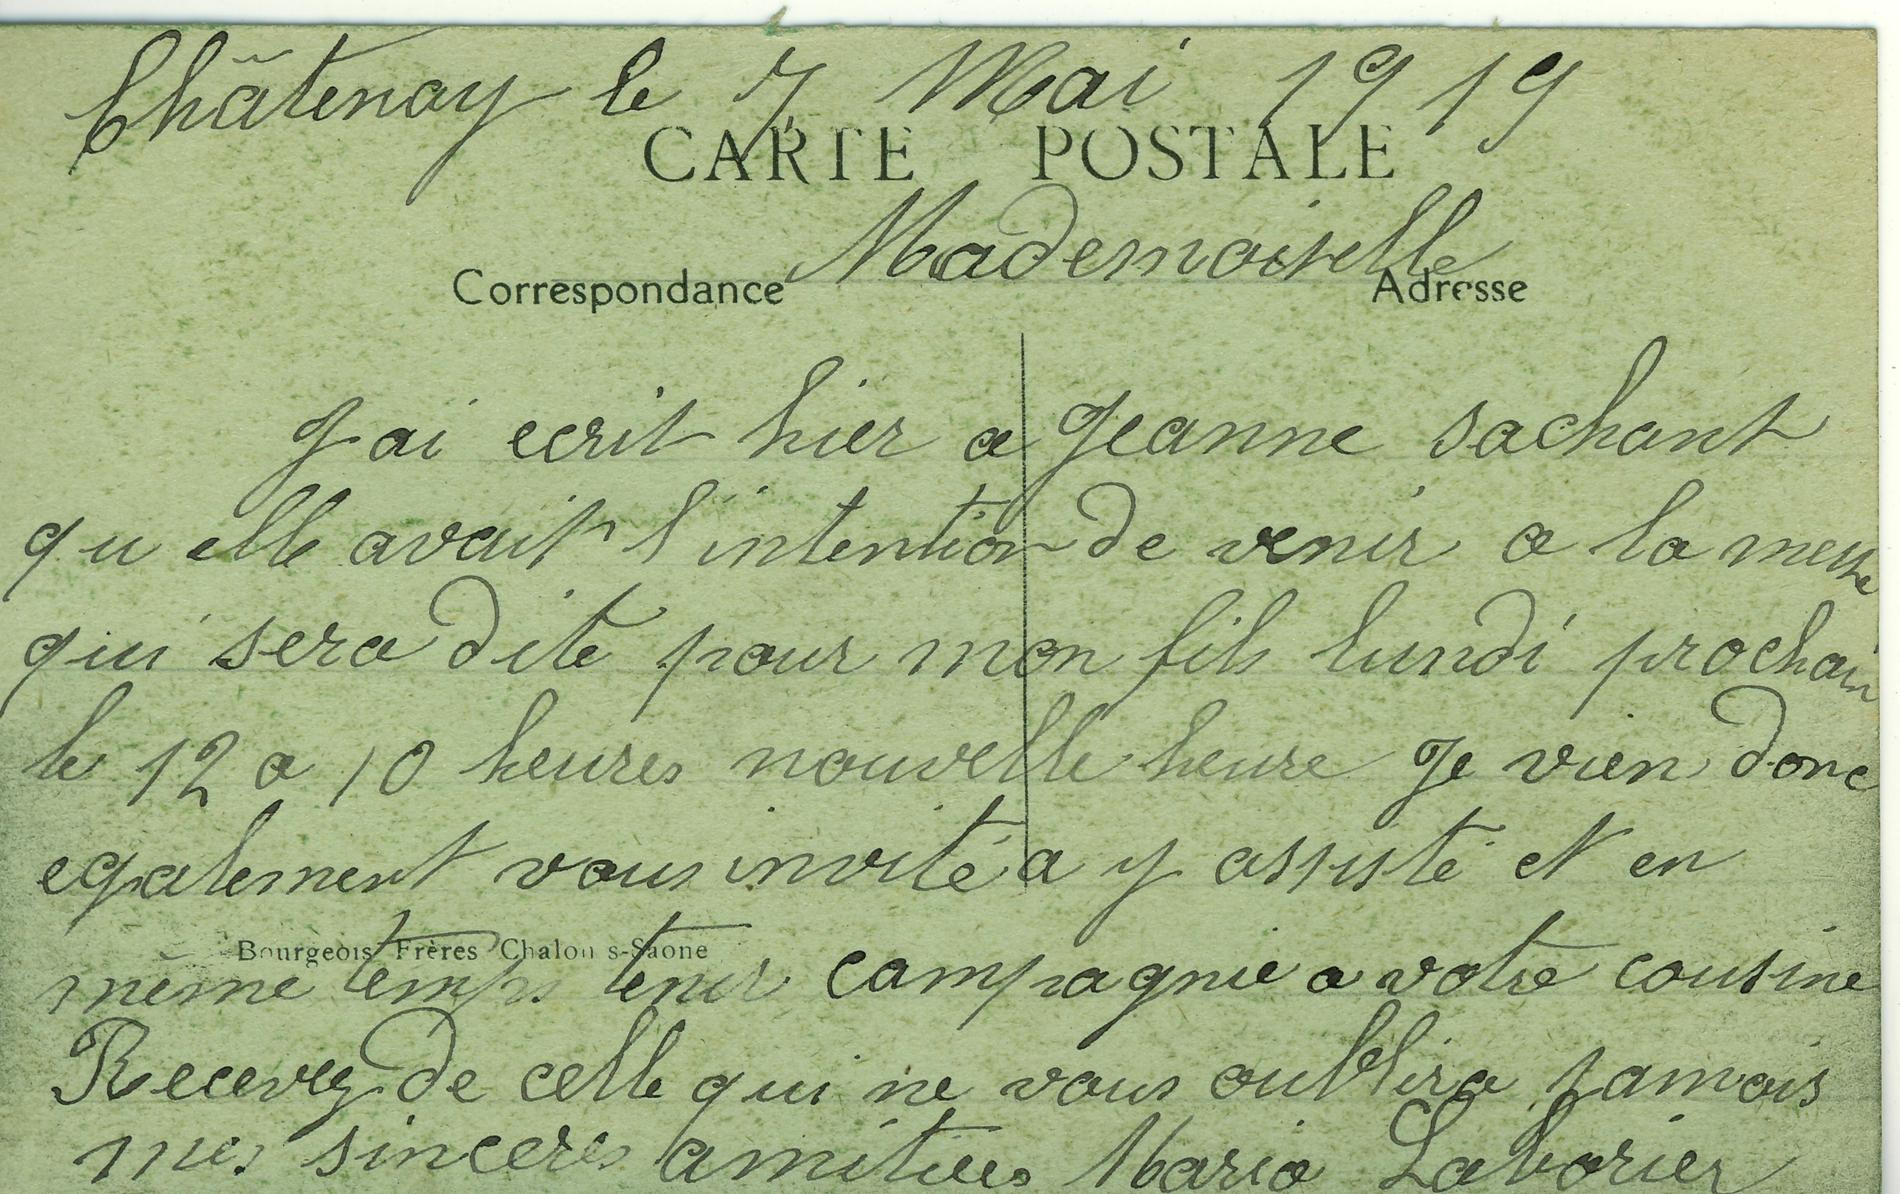 Châtenay le 7 Mai 1919
CARTE POSTALE
Mademoiselle
Correspondance Adresse
J ai ecrit hier a Jeanne sachant
qu elle avait l intention de venir a la messe
qui sera dite pour mon fils lundi prochain
le 12 a 10 heures nouvelle heure Je vien donc
egalement vous invité a y assisté et en
même temps tenir compagnie a votre cousine
Bourgeois Frères Chalon s-Saone
Recevez de celle qui ne vous oublira jamais
mes sinceres amitiées Maria Laborier